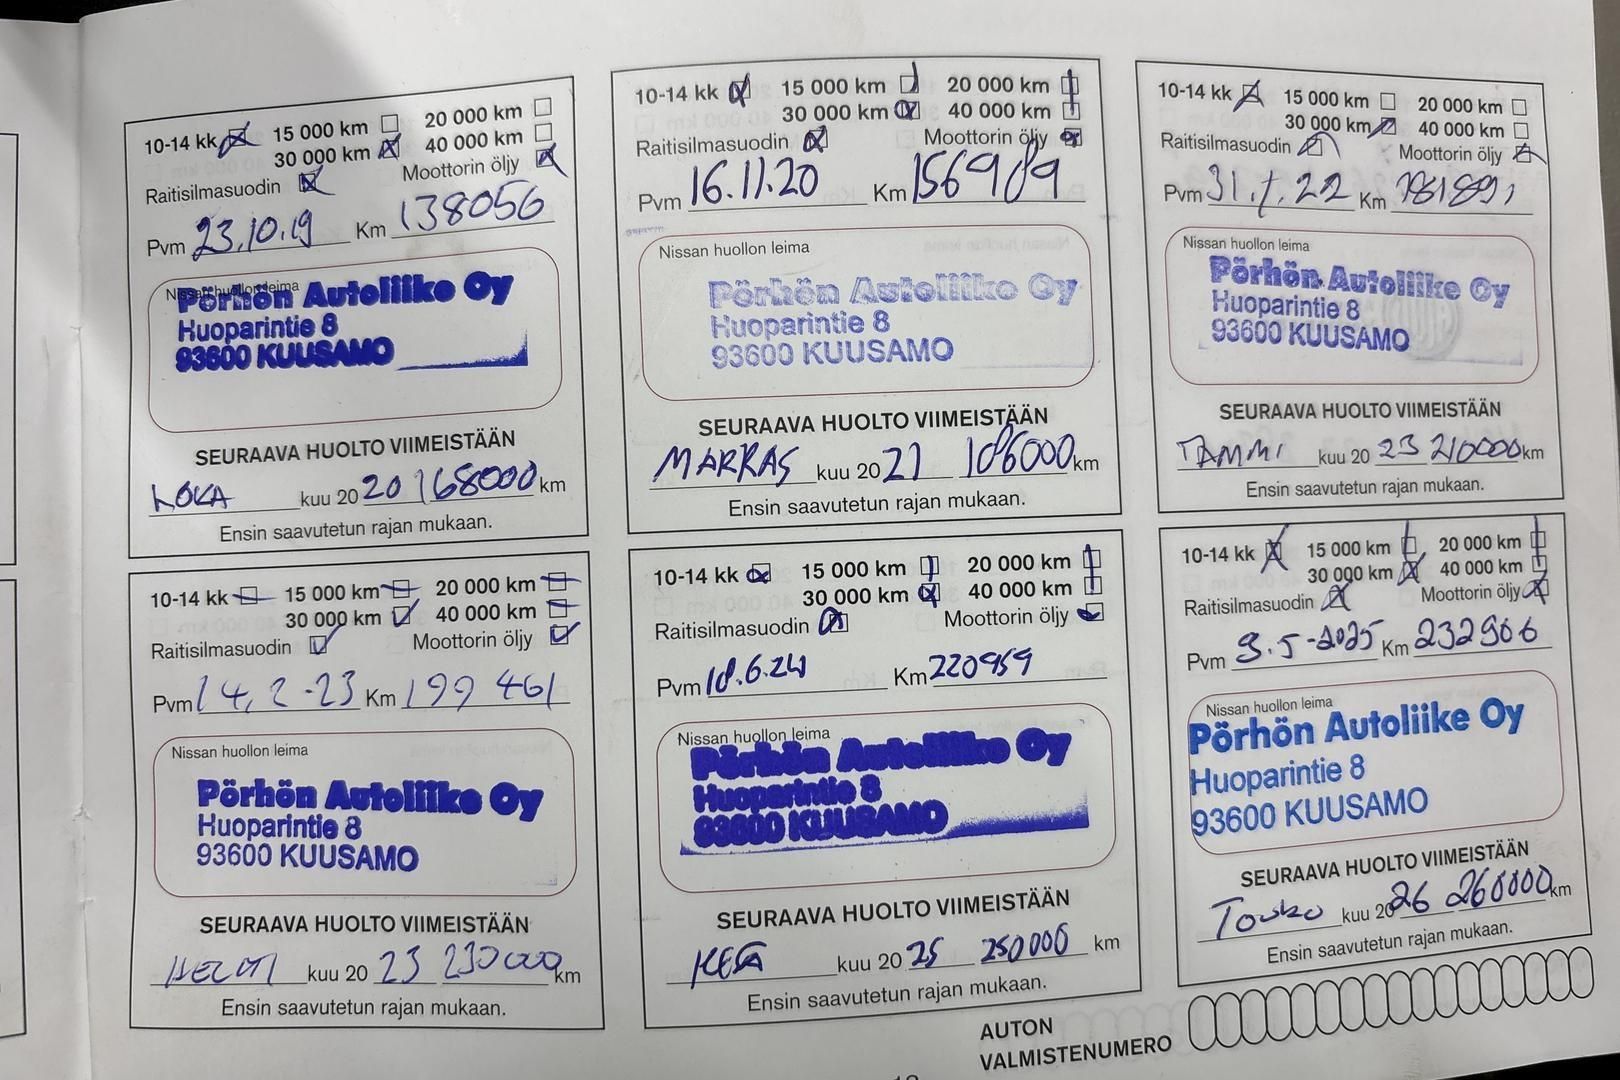 10-14 kk 15 000 km 20 000 km
30 000 km 40 000 km
Raitisilmasuodin Moottorin öljy
Pvm 23.10.19 Km 138056
Nissan huollon leima
Pörhön Autoliike Oy
Huoparintie 8
93600 KUUSAMO
SEURAAVA HUOLTO VIIMEISTÄÄN
LOKA kuu 20 20 168000 km
Ensin saavutetun rajan mukaan.
10-14 kk 15 000 km 20 000 km
30 000 km 40 000 km
Raitisilmasuodin Moottorin öljy
Pvm 16.11.20 Km
Nissan huollon leima
Pörhön Autoliike Oy
Huoparintie 8
93600 KUUSAMO
SEURAAVA HUOLTO VIIMEISTÄÄN
MARRAS kuu 20 21 186000 km
Ensin saavutetun rajan mukaan.
10-14 kk 15 000 km 20 000 km
30 000 km 40 000 km
Raitisilmasuodin Moottorin öljy
Pvm 31.1.22 Km 181891
Nissan huollon leima
Pörhön Autoliike Oy
Huoparintie 8
93600 KUUSAMO
SEURAAVA HUOLTO VIIMEISTÄÄN
TAMMI kuu 20 23 210000 km
Ensin saavutetun rajan mukaan.
10-14 kk 15 000 km 20 000 km
30 000 km 40 000 km
Raitisilmasuodin Moottorin öljy
Pvm 14.2-23 Km 199 461
Nissan huollon leima
Pörhön Autoliike Oy
Huoparintie 8
93600 KUUSAMO
SEURAAVA HUOLTO VIIMEISTÄÄN
kuu 20 23 230000 km
Ensin saavutetun rajan mukaan.
10-14 kk 15 000 km 20 000 km
30 000 km 40 000 km
Raitisilmasuodin Moottorin öljy
Pvm 18.6.24 Km 220959
Nissan huollon leima
Pörhön Autoliike Oy
Huoparintie 8
93600 KUUSAMO
SEURAAVA HUOLTO VIIMEISTÄÄN
KESÄ kuu 20 25 250000 km
Ensin saavutetun rajan mukaan.
10-14 kk 15 000 km 20 000 km
30 000 km 40 000 km
Raitisilmasuodin Moottorin öljy
Pvm 9.5-2025 Km 232906
Nissan huollon leima
Pörhön Autoliike Oy
Huoparintie 8
93600 KUUSAMO
SEURAAVA HUOLTO VIIMEISTÄÄN
Touko kuu 20 26 260000 km
Ensin saavutetun rajan mukaan.
AUTON
VALMISTENUMERO